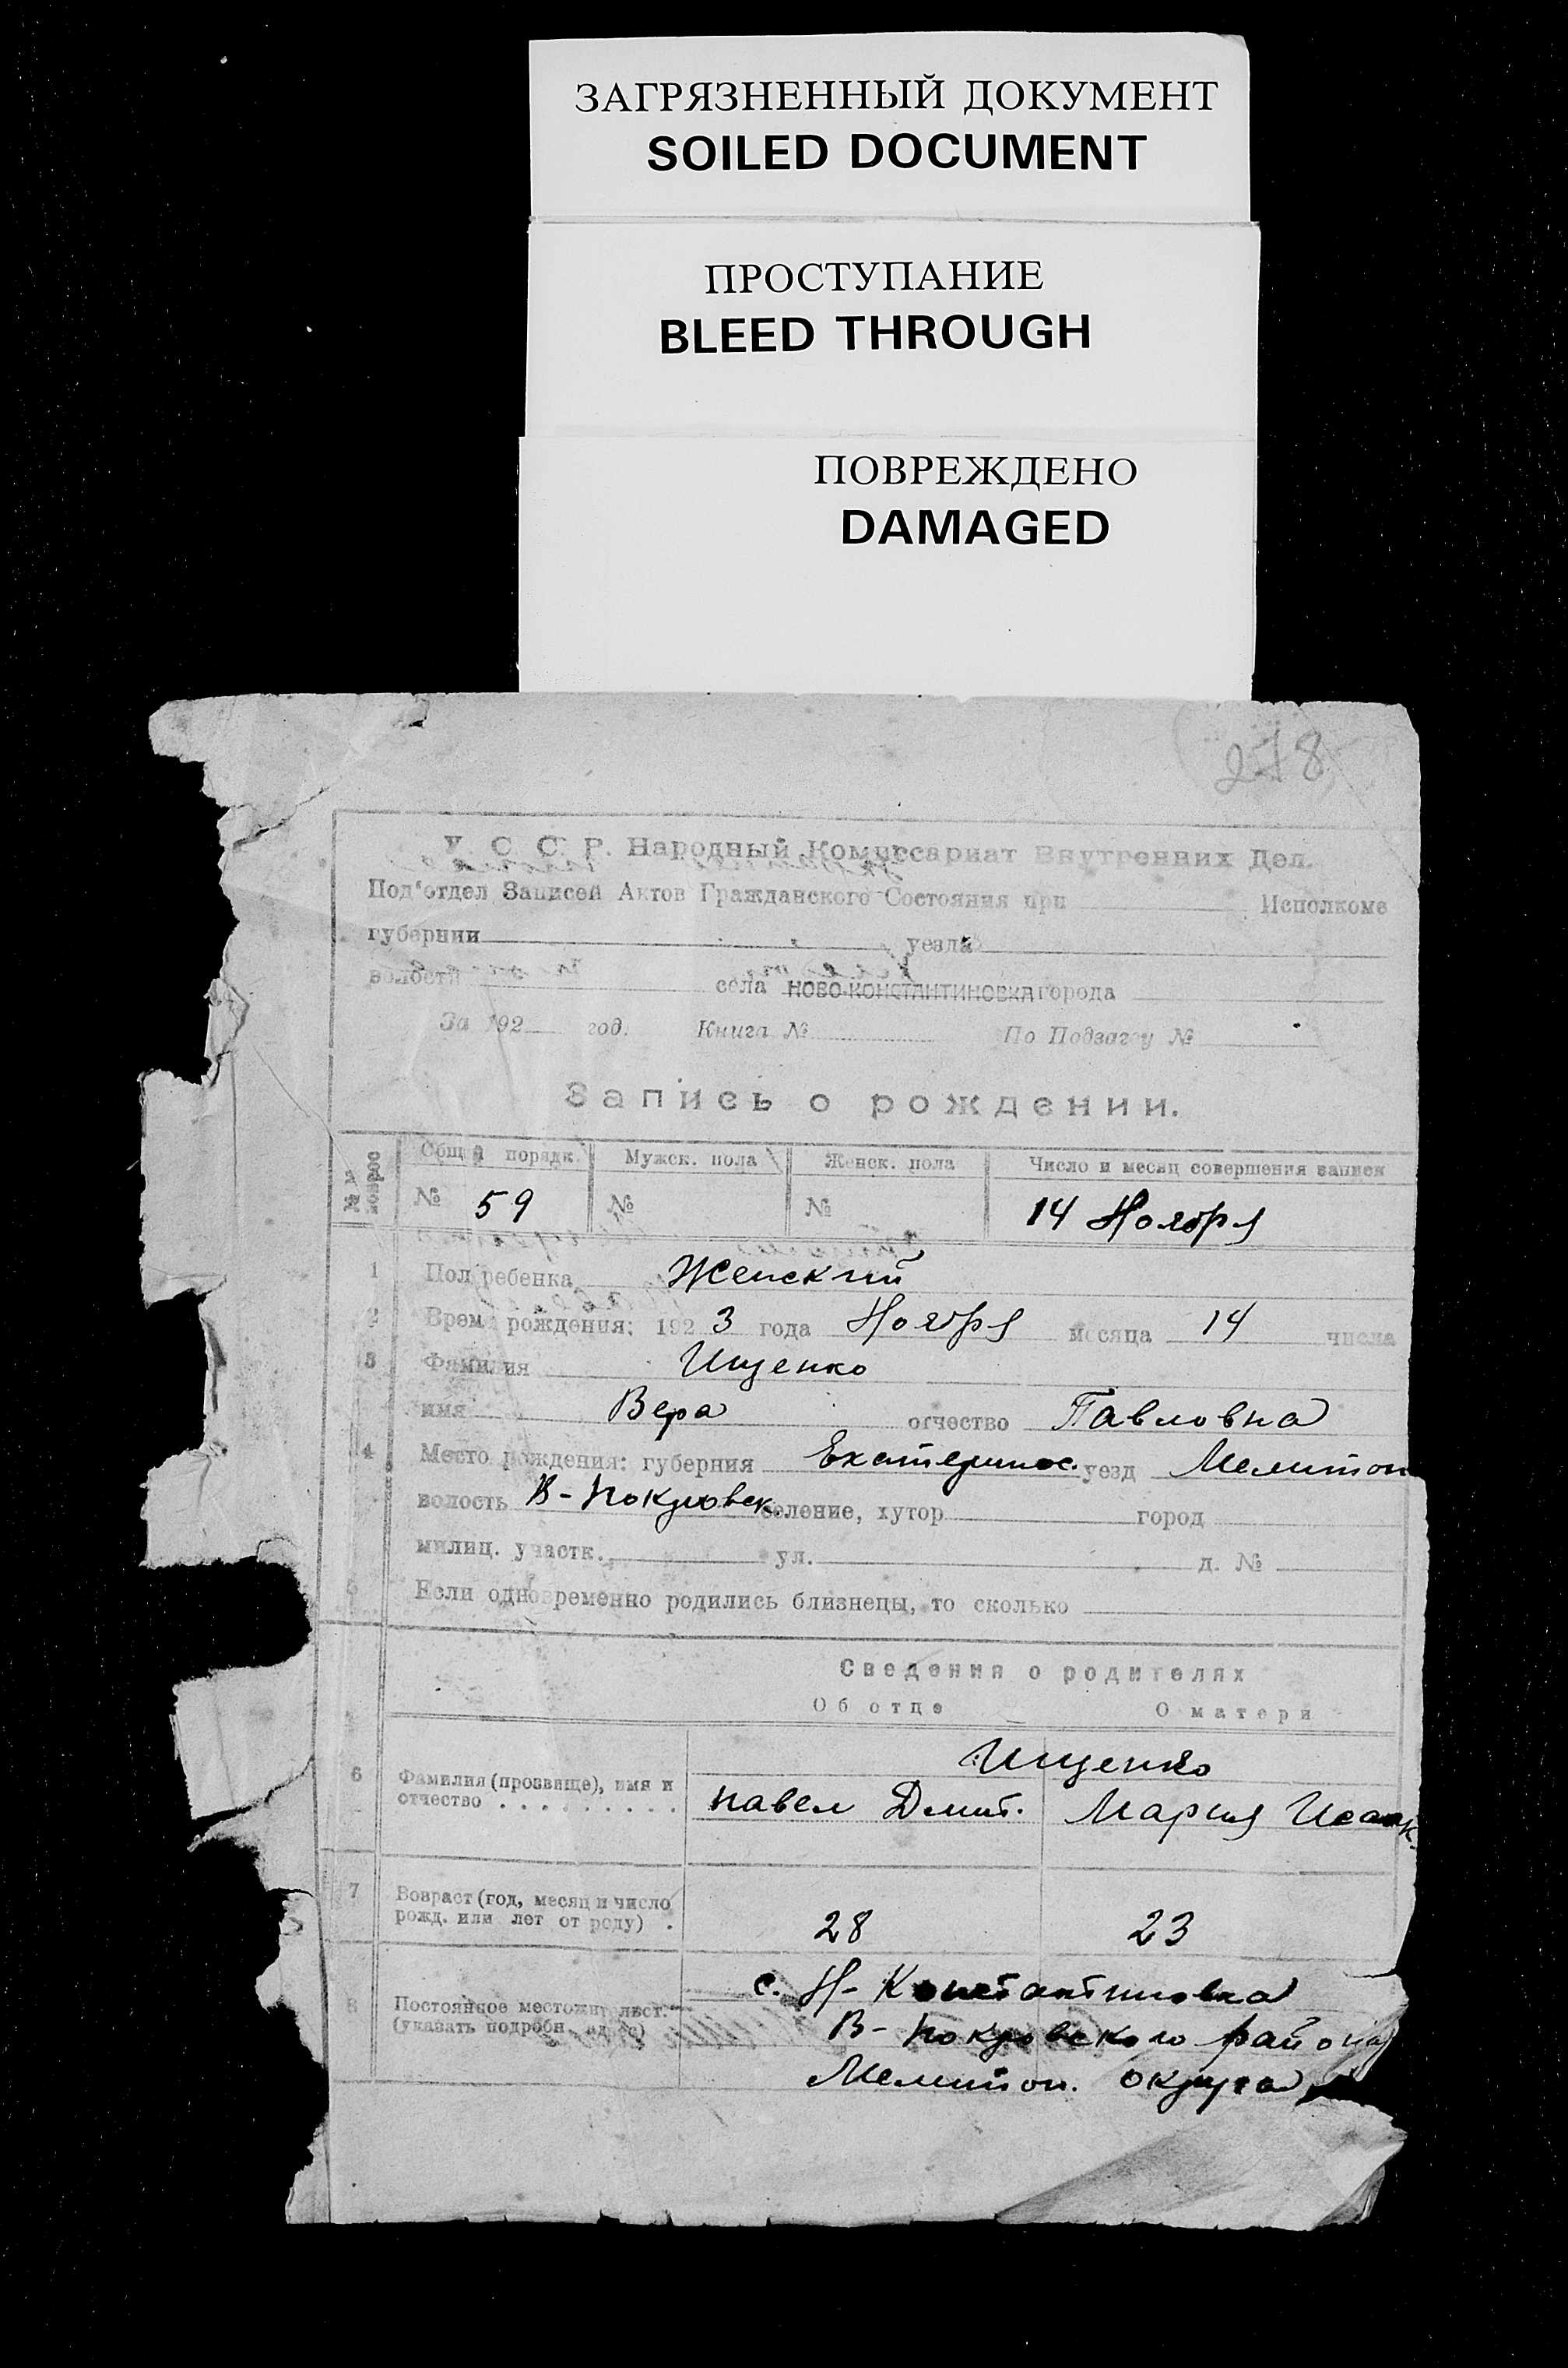 ЗАГРЯЗНЕННЫЙ ДОКУМЕНТ
SOILED DOCUMENT
ПРОСТУПАНИЕ
BLEED THROUGH
ПОВРЕЖДЕНО
DAMAGED
278
У. С. С. Р. Народный Комиссариат Внутренних Дел.
Под'отдел Записей Актов Гражданского Состояния при Исполкоме
губернии уезда
волости села НОВО-КОНСТАНТИНОВКА города
За 192 год. Книга № По Подзагсу №
Запись о рождении.
№№ вопрос Общий порядк. Мужск. пола Женск. пола Число и месяц совершения записи
№ 59 № № 14 Ноября
1 Пол ребенка Женский
2 Время рождения: 192 3 года Ноября месяца 14 числа
3 Фамилия Ищенко
имя Вера отчество Павловна
4 Место рождения: губерния Екатеринос. уезд Мелитоп
волость В-Покровск. селение, хутор город
милиц. участк. ул. д. №
5 Если одновременно родились близнецы, то сколько
Сведения о родителях
Об отце О матери
Ищенко
6 Фамилия (прозвище), имя и
отчество . . . . . . . . . Павел Дмит. Мария Исаак.
7 Возраст (год, месяц и число
рожд. или лет от роду) . 28 23
с. Н-Константиновка
8 Постоянное местожительст.
(указать подробн. адрес) В-Покровского района
Мелитоп. округа